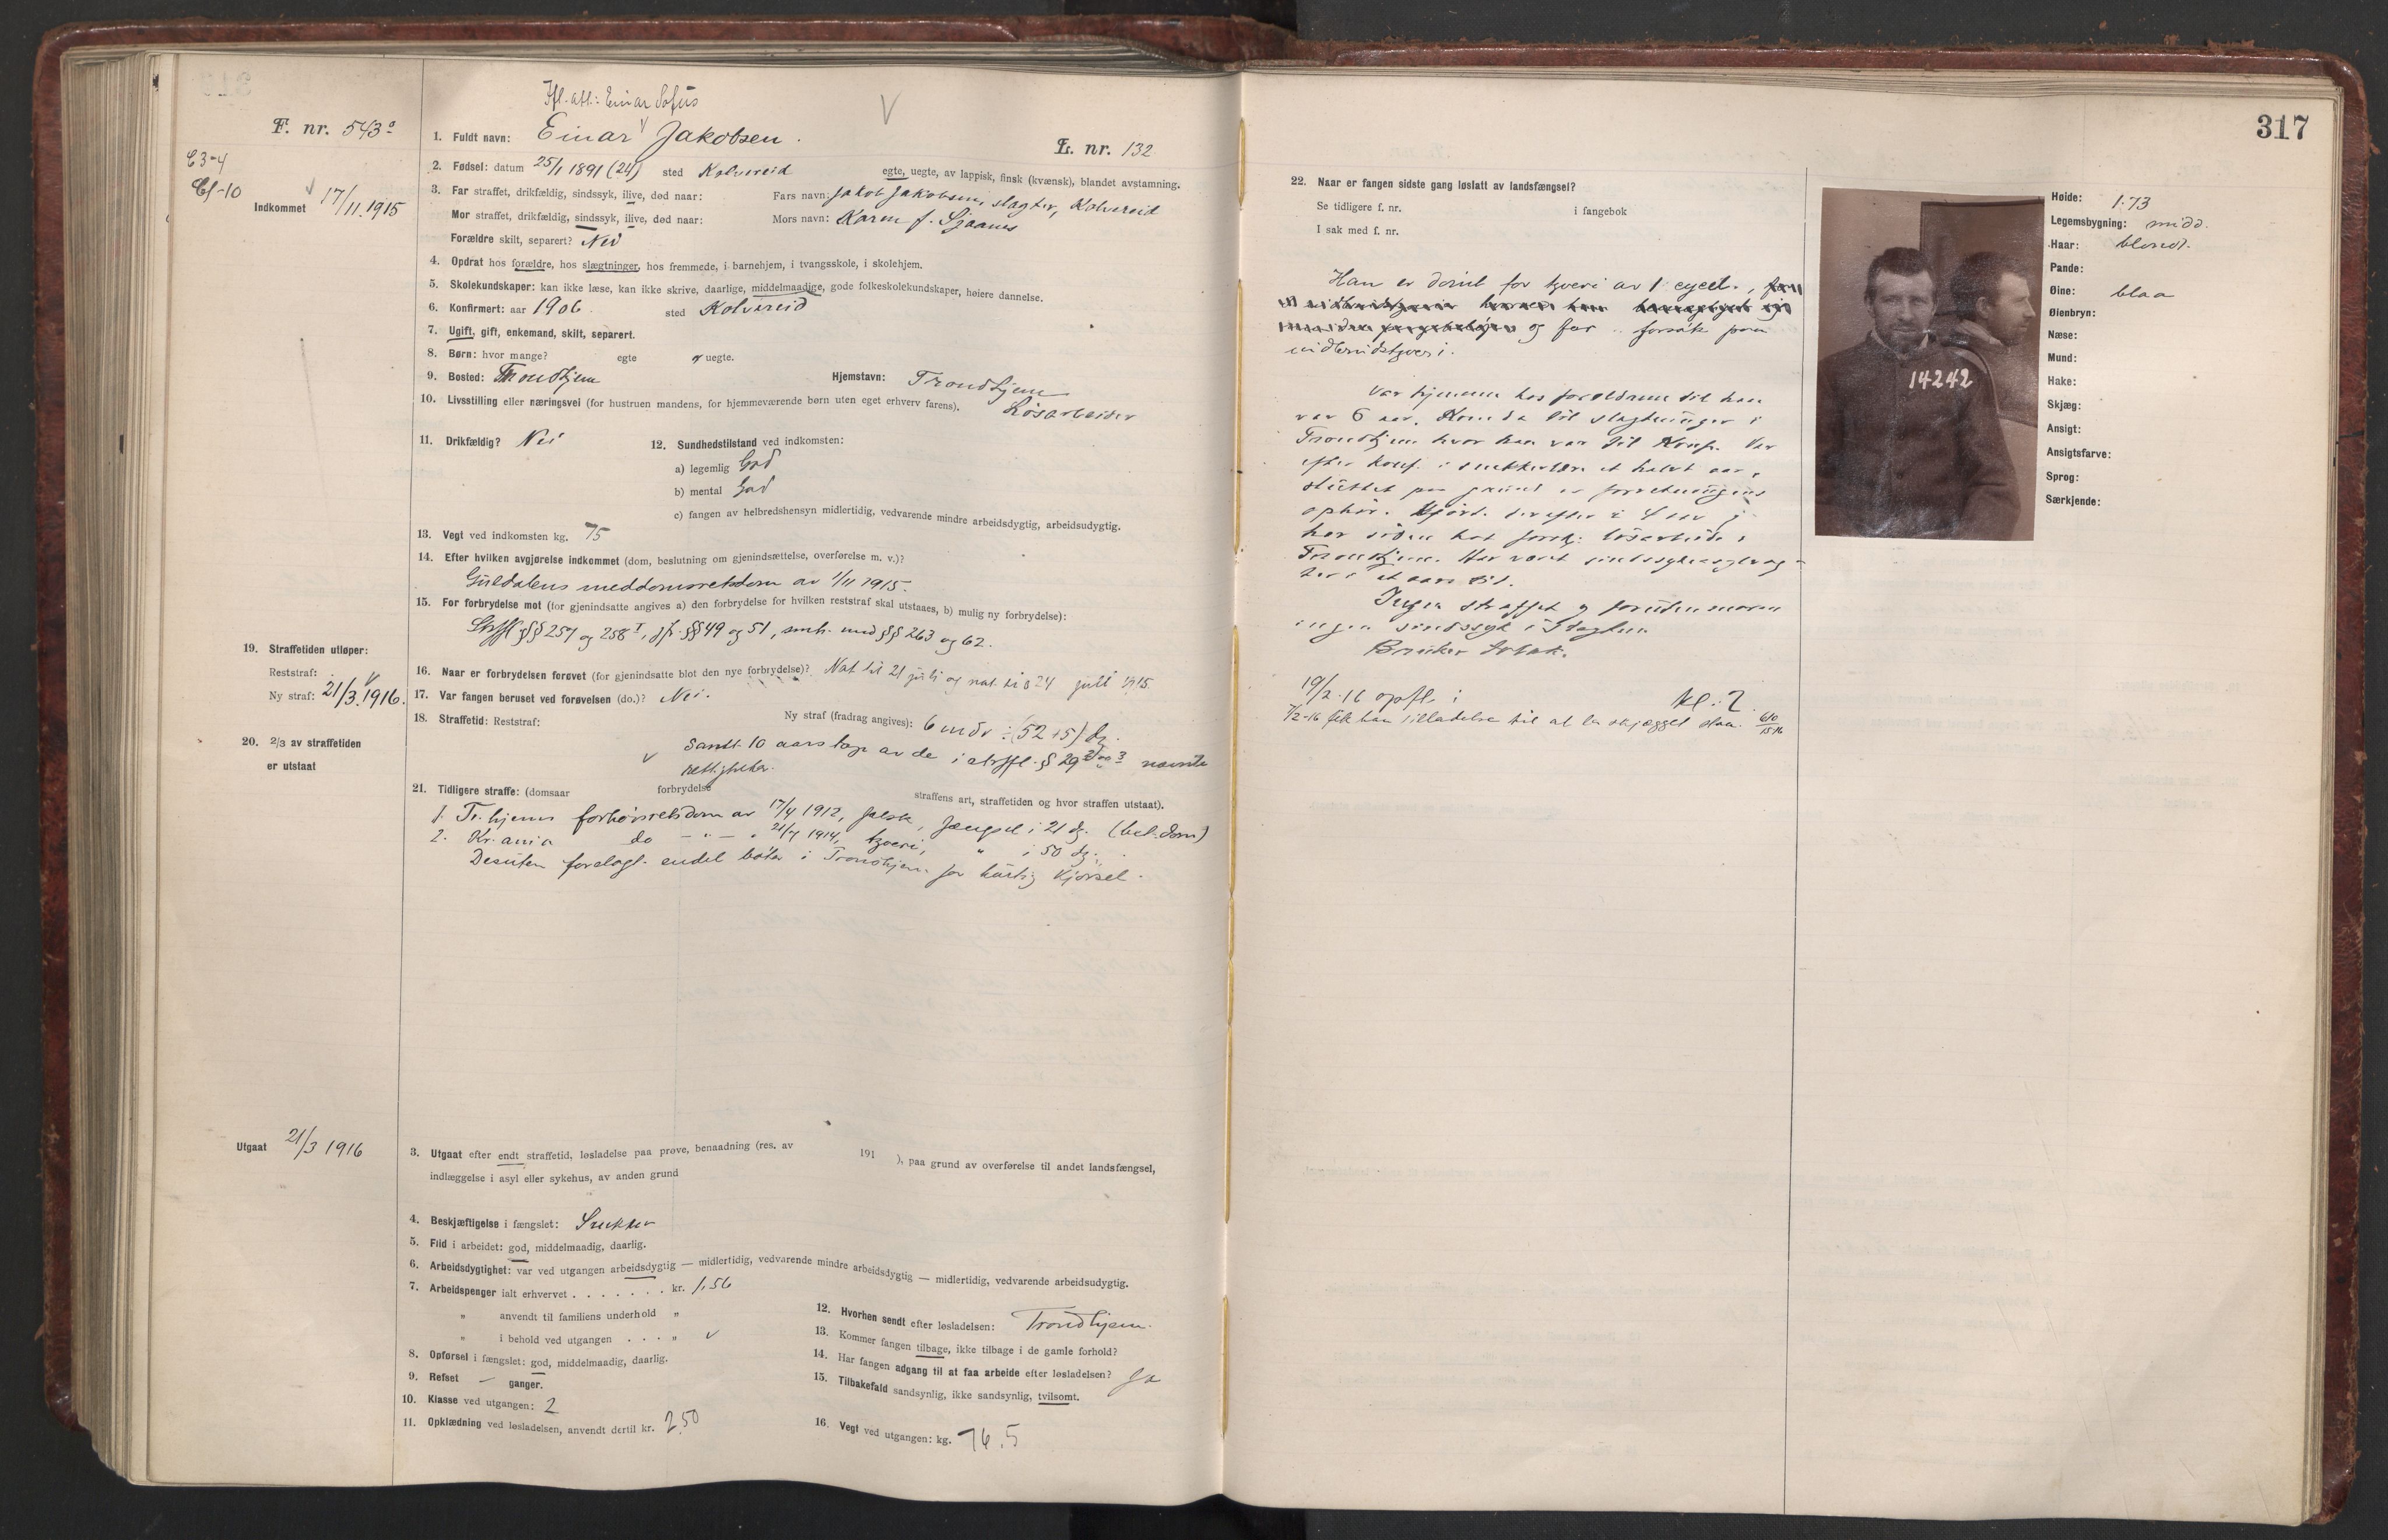 317
Ifl. att.: Einar Sofus
F. nr. 543a
C3-4
Cf-10
Indkommet 17/11.1915
1. Fuldt navn: Einar Jakobsen.
L. nr. 132
2. Fødsel: datum 25/1 1891 (24) sted Kolvereid egte, uegte, av lappisk, finsk (kvænsk), blandet avstamning.
3. Far straffet, drikfældig, sindssyk, ilive, død naar: Fars navn: Jakob Jakobsen, slagter, Kolvereid
Mor straffet, drikfældig, sindssyk, ilive, død naar: Mors navn: Karen f.
Forældre skilt, separert? Nei
4. Opdrat hos forældre, hos slægtninger, hos fremmede, i barnehjem, i tvangsskole, i skolehjem.
5. Skolekundskaper: kan ikke læse, kan ikke skrive, daarlige, middelmaadige, gode folkeskolekundskaper, høiere dannelse.
6. Konfirmert: aar 1906. sted Kolvereid
7. Ugift, gift, enkemand, skilt, separert.
8. Børn: hvor mange? egte uegte.
9. Bosted: Trondhjem Hjemstavn: Trondhjem
10. Livsstilling eller næringsvei (for hustruen mandens, for hjemmeværende børn uten eget erhverv farens). Løsarbeider
11. Drikfældig? Nei 12. Sundhedstilstand ved indkomsten:
a) legemlig God
b) mental God
c) fangen av helbredshensyn midlertidig, vedvarende mindre arbeidsdygtig, arbeidsudygtig.
13. Vegt ved indkomsten kg. 75
14. Efter hvilken avgjørelse indkommet (dom, beslutning om gjenindsættelse, overførelse m. v.)?
Guldalens meddomsretsdom av 1/11 1915.
15. For forbrydelse mot (for gjenindsatte angives a) den forbrydelse for hvilken reststraf skal utstaaes, b) mulig ny forbrydelse):
Strffl §§ 257 og 258 I, jfr. §§ 49 og 51, smh. med §§ 263 og 62.
16. Naar er forbrydelsen forøvet (for gjenindsatte blot den nye forbrydelse)? Nat til 21 juli og nat til 24 juli 1915.
17. Var fangen beruset ved forøvelsen (do.)? Nei.
18. Straffetid: Reststraf: Ny straf (fradrag angives): 6 mndr ÷ (52+5) dg.
Samt 10 aars tap av de i strffl. § 29 nævnte
rettigheter.
19. Straffetiden utløper:
Reststraf:
Ny straf: 21/3.1916.
20. 2/3 av straffetiden
er utstaat
21. Tidligere straffe: (domsaar forbrydelse straffens art, straffetiden og hvor straffen utstaat).
1. Tr.hjems forhørsretsdom av 17/4 1912, falsk, fængsel i 21 dg. (bet. dom)
2. Kr.ania do — " — " 21/7 1914, tyveri, " i 50 dg.
Desuten forelagt endel bøter i Trondhjem for hurtig kjørsel.
Utgaat 21/3 1916
3. Utgaat efter endt straffetid, løsladelse paa prøve, benaadning (res. av 191 ), paa grund av overførelse til andet landsfængsel,
indlæggelse i asyl eller sykehus, av anden grund
4. Beskjæftigelse i fængslet: Snekker
5. Flid i arbeidet: god, middelmaadig, daarlig.
6. Arbeidsdygtighet: var ved utgangen arbeidsdygtig — midlertidig, vedvarende mindre arbeidsdygtig — midlertidig, vedvarende arbeidsudygtig.
7. Arbeidspenger ialt erhvervet . . . . . . . kr. 1,56
" anvendt til familiens underhold "
" i behold ved utgangen . . . "
8. Opførsel i fængslet: god, middelmaadig, daarlig.
9. Refset — ganger.
10. Klasse ved utgangen: 2
11. Opklædning ved løsladelsen, anvendt dertil kr. 2,50
12. Hvorhen sendt efter løsladelsen: Trondhjem.
13. Kommer fangen tilbage, ikke tilbage i de gamle forhold?
14. Har fangen adgang til at faa arbeide efter løsladelsen? Ja
15. Tilbakefald sandsynlig, ikke sandsynlig, tvilsomt.
16. Vegt ved utgangen: kg. 76.5
22. Naar er fangen sidste gang løslatt av landsfængsel?
Se tidligere f. nr. i fangebok
I sak med f. nr.
Han er dømt for tyveri av 1 cycel.,
og for forsøk paa
indbrudstyveri.
Var hjemme hos forældrene til han
var 6 aar. Kom da til slegtninger i
Trondhjem hvor han var til Konf. Var
efter konf. i snekkerlære et halvt aar,
sluttet paa grund av forretningens
ophør.
har siden hat forsk. løsarbeide i
Trondhjem. Har været sindssykeasylvog-
ter i et aars tid.
Ingen straffet og foruten moren
ingen sindssyk i slegten.
Bruker tobak.
19/2-16 opfl. i kl. 2
7/2-16 fik han tilladelse til at la skjægget staa. 610/15-16
14242
Høide: 1.73
Legemsbygning: midd.
Haar: blondt.
Pande:
Øine: blaa
Øienbryn:
Næse:
Mund:
Hake:
Skjæg:
Ansigt:
Ansigtsfarve:
Sprog:
Særkjende: